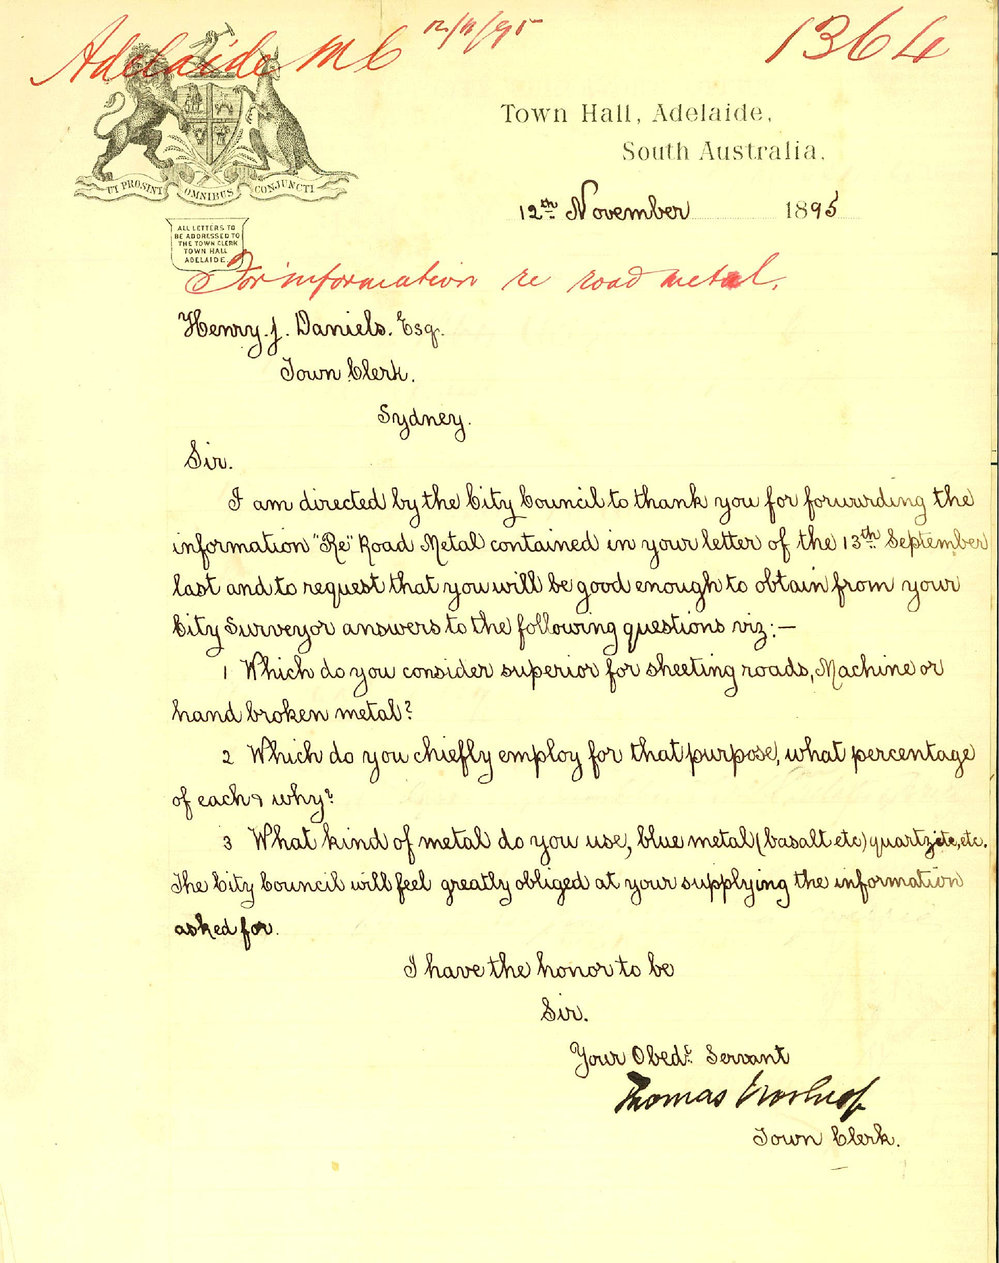 Adelaide M C 12/11/95
1364
UT PROSINT OMNIBUS CONJUNCTI
Town Hall, Adelaide,
South Australia.
12th November 1895
ALL LETTERS TO
BE ADDRESSED TO
THE TOWN CLERK
TOWN HALL
ADELAIDE.
For information re road metal.
Henry. J. Daniels. Esq.
Town Clerk.
Sydney.
Sir.
I am directed by the City Council to thank you for forwarding the
information "Re" Road Metal contained in your letter of the 13th September
last and to request that you will be good enough to obtain from your
City Surveyor answers to the following questions viz:—
1 Which do you consider superior for sheeting roads, Machine or
hand broken metal?
2 Which do you chiefly employ for that purpose, what percentage
of each & why?
3 What kind of metal do you use, blue metal (basalt etc) quartzite, etc.
The City Council will feel greatly obliged at your supplying the information
asked for.
I have the honor to be
Sir.
Your Obedt. Servant
Thomas
Town Clerk.